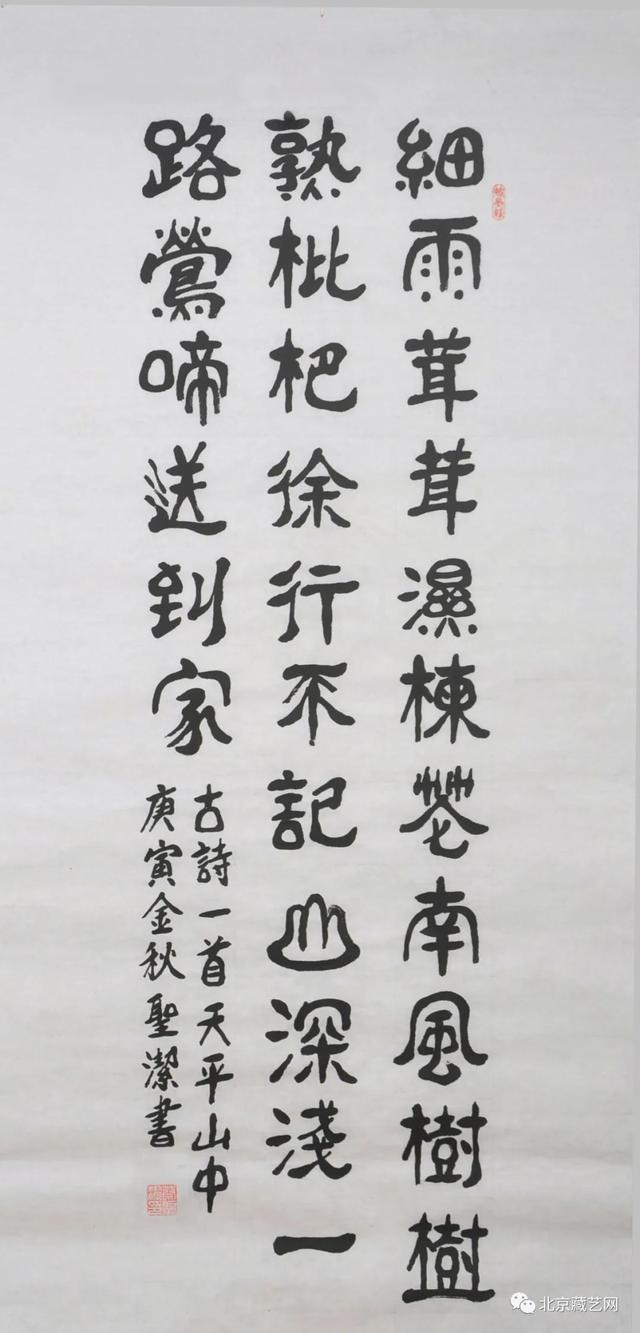 細雨茸茸濕楝花南風樹樹
熟枇杷徐行不記山深淺一
路鶯啼送到家
古詩一首天平山中
庚寅金秋聖潔書
北京藏艺网